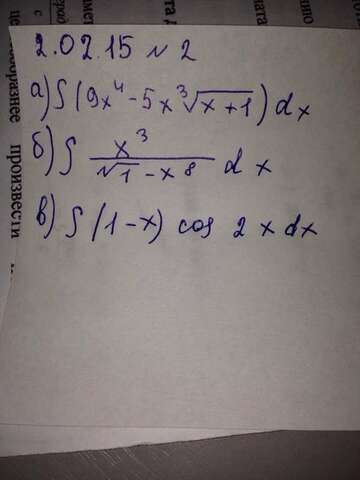 2.02.15 №2
а) ∫(9x⁴ - 5x ∛(x+1)) dx
б) ∫ x³ / (√1 - x⁸) dx
в) ∫(1-x) cos 2x dx